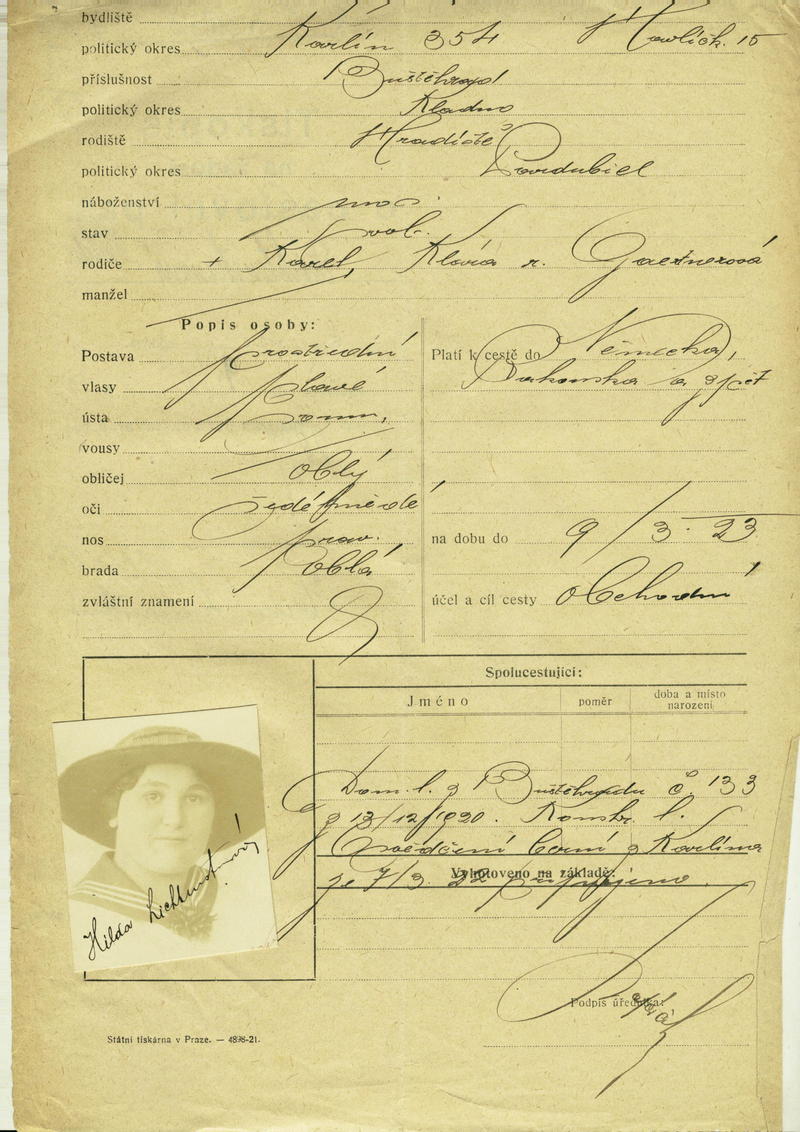 bydliště
politický okres Karlín 354 Havlíčk. 15
příslušnost Buštěhrad
politický okres Kladno
rodiště Hradiště
politický okres Pardubice
náboženství mos.
stav svob.
rodiče + Karel, Klára r. Gaertnerová
manžel
Popis osoby:
Postava prostřední
vlasy plavé
ústa
vousy
obličej oblý
oči šedé
nos prav.
brada oblá
zvláštní znamení
Platí k cestě do Německa,
Rakouska a zpět
na dobu do 9/3. 23
účel a cíl cesty obchodní
Spolucestující:
Jméno poměr doba a místo narození
Dom. l. z Buštěhradu č. 133
z 13/12/1920. Konstr. l.
Osvědčení berní z Karlína
Vyhotoveno na základě:
ze 7/3. 22 připojeno.
Podpis úředníka:
Hilda Lichtensternová
Státní tiskárna v Praze. — 4898-21.